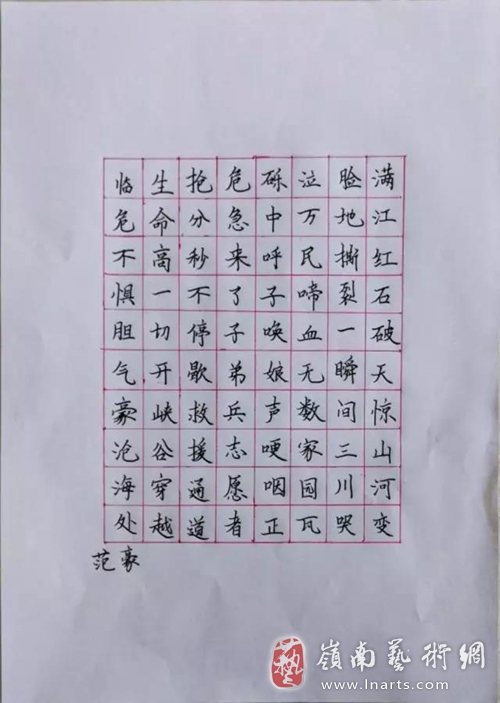 满江红石破天惊山河变
脸地撕裂一瞬间三川哭
泣万民啼血无数家园瓦
砾中呼子唤娘声哽咽正
危急来了子弟兵志愿者
抢分秒不停歇救援通道
生命高一切开峡谷穿越
临危不惧胆气豪沧海处
范豪
藝
嶺南藝術網
www.lnarts.com